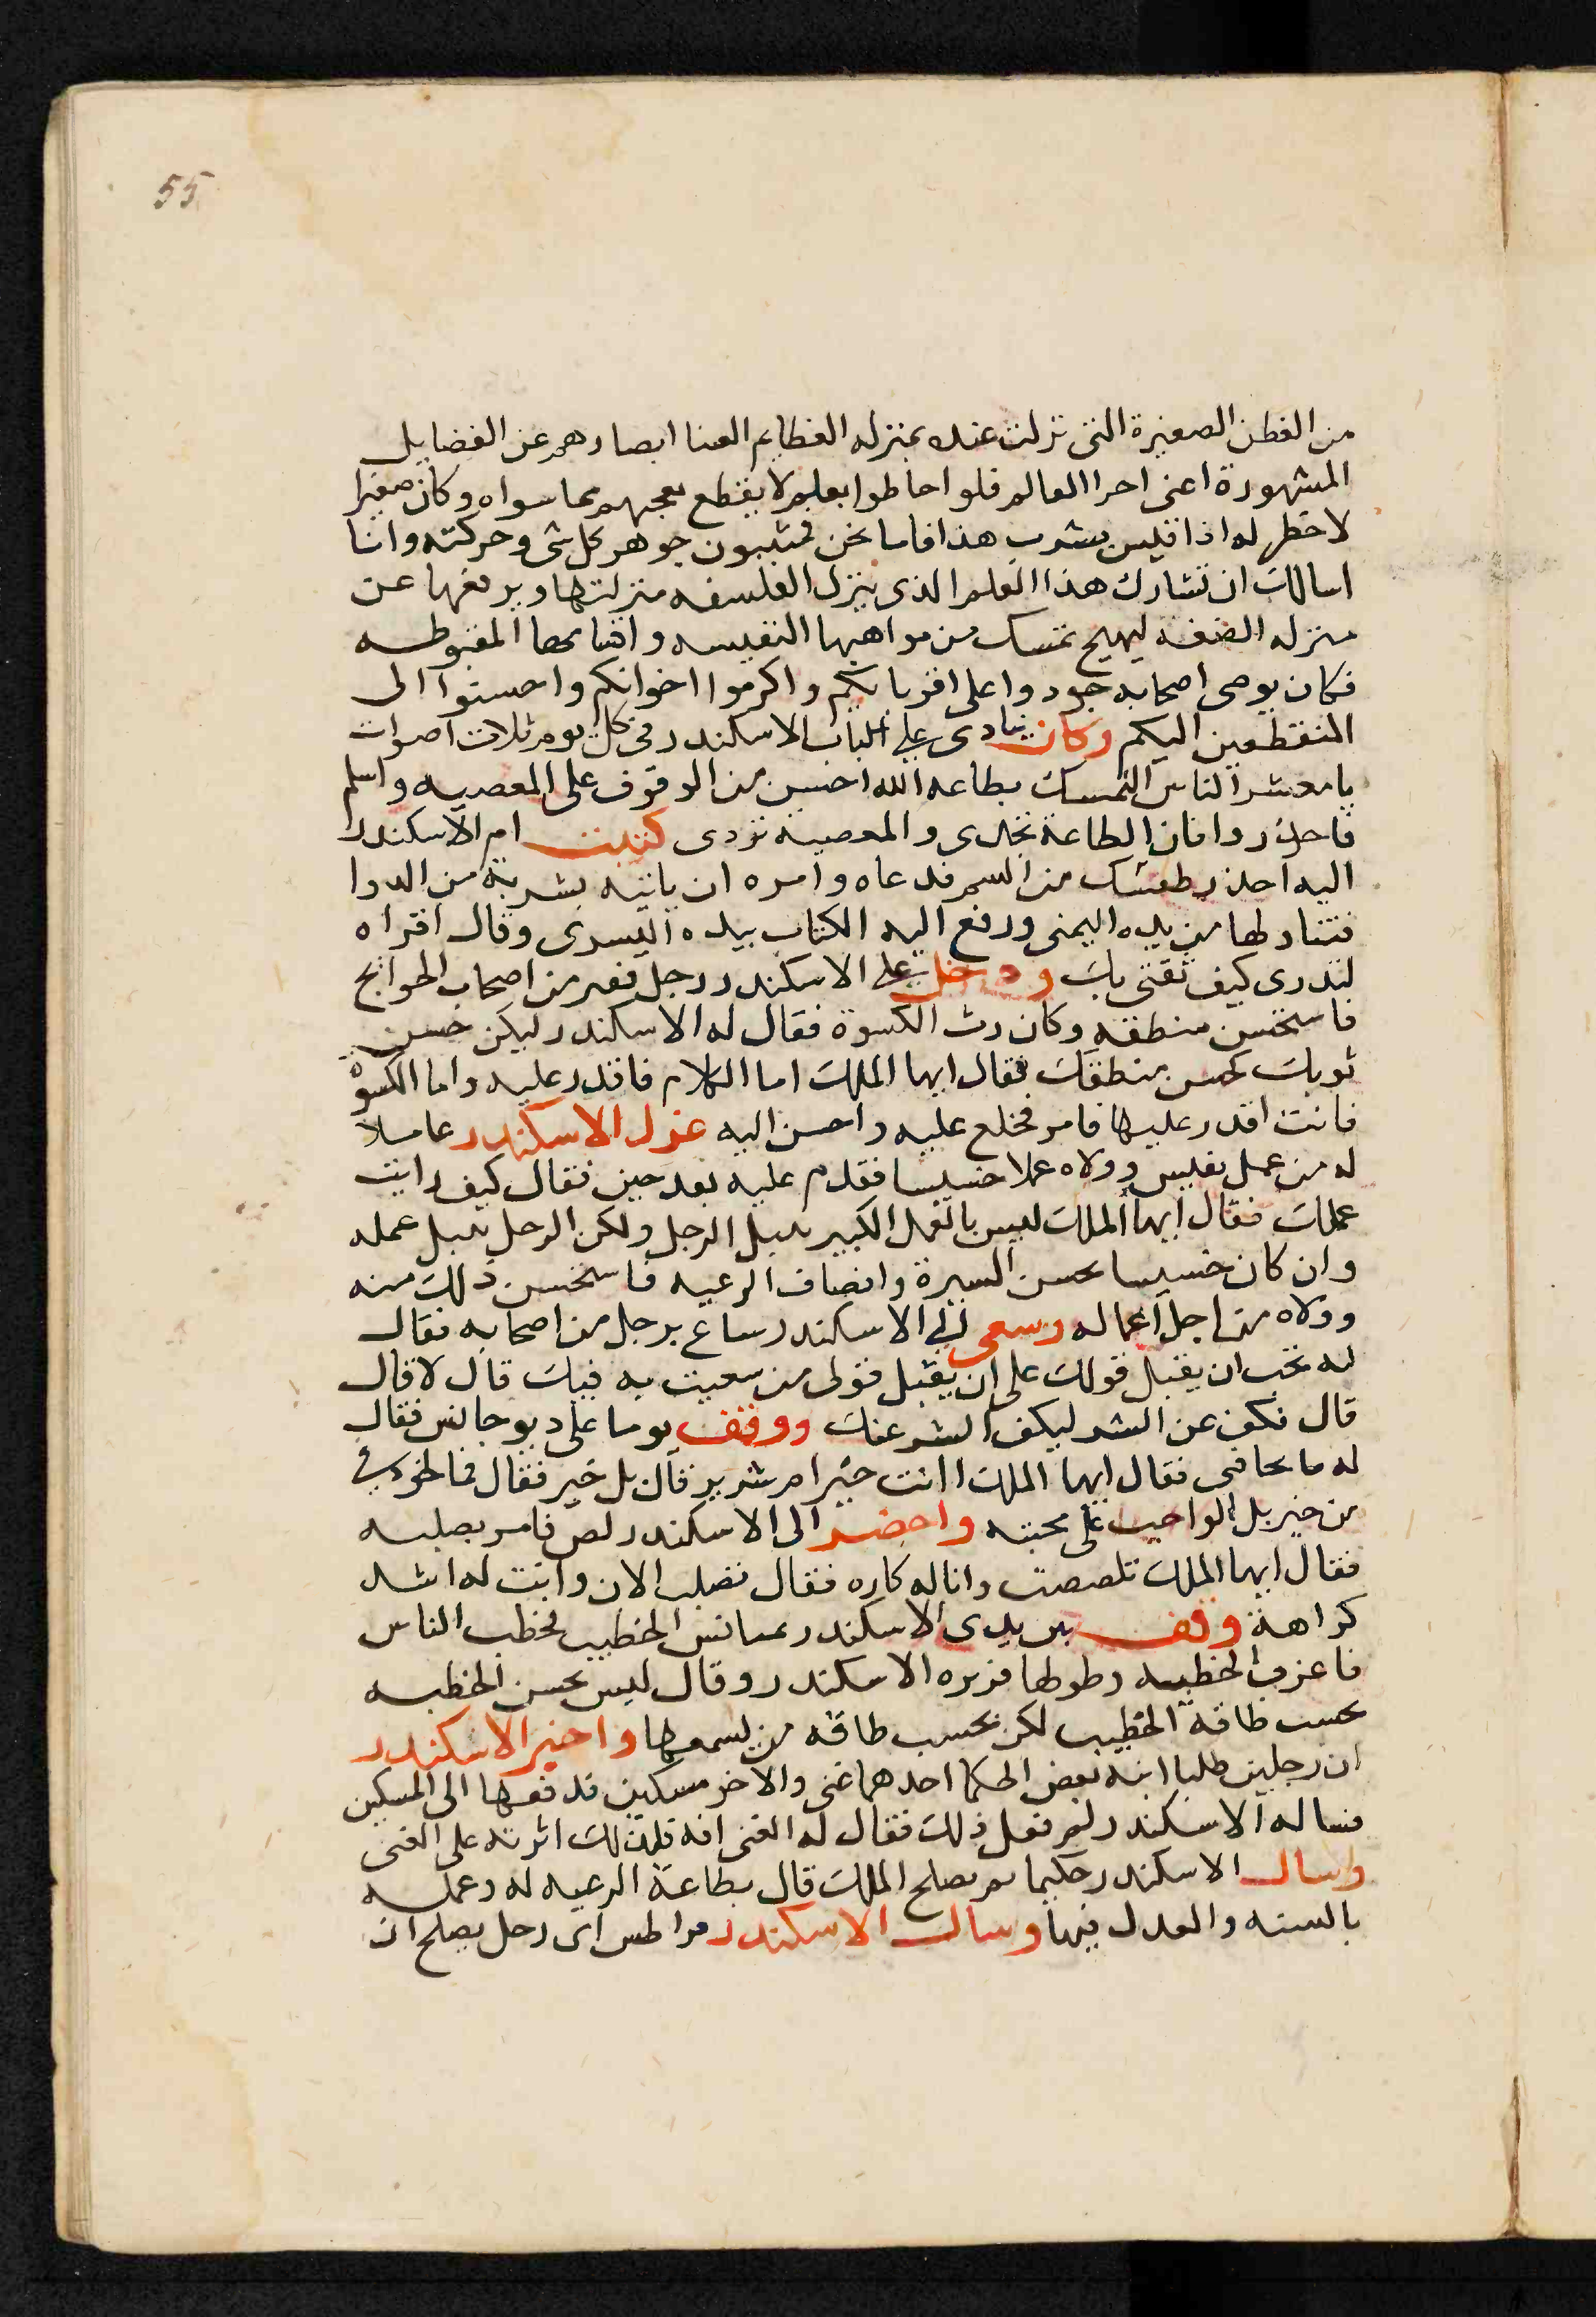 55
من الفطن الصغيرة التي نزلت عنده بمنزله العظايم ابصارهم عن الفضايل
المشهورة اعنى اجرا العالم فلو احاطوا بعلم لا يقطع تعجبهم مما سواه وكان صغيرا
لا خطر له اذا قيس بشرب هذا فاما نحن فمثبتون جوهر كل شى وحركته وانا
اسالك ان تشارك هذا العلم الذى ينزل الفلسفه منزلتها ويرفعها عن
منزله الضعة ليهيج نفسك من مواهبها النفيسه المغبوطه
فكان يوصى اصحابه جودوا على اقربايكم واكرموا اخوانكم واحسنوا الى
المنقطعين اليكم وكان ينادى على الباب الاسكندر فى كل يوم ثلاث اصوات
يا معشر الناس التمسك بطاعه الله احسن من الوقوف على المعصيه واسلم
فاحذروا فان الطاعة تجدى والمعصية تردى كتبت ام الاسكندر
اليه احذر طعنك من السم فدعاه وامره ان ياتيه بشربة من الدوا
فتناولها من يده اليمنى ودفع اليه الكتاب بيده اليسرى وقال اقراه
لتدرى كيف ثقتى بك ودخل على الاسكندر رجل فقير من اصحاب الحوايج
فاستحسن منطقه وكان رث الكسوة فقال له الاسكندر ليكن حسن
ثوبك كحسن منطقك فقال ايها الملك اما الكلام فاقدر عليه واما الكسوة
فانت اقدر عليها فامر فخلع عليه واحسن اليه عزل الاسكندر عاملا
له من عمل نفيس وولاه عملا خسيسا فقدم عليه بعد حين فقال كيف رايت
عملك فقال ايها الملك ليس بالعمل الكبير ينبل الرجل ولكن الرجل ينبل عمله
وان كان خسيسا بحسن السيرة وانصاف الرعيه فاستحسن ذلك منه
وولاه من اجل اعماله وسعى الى الاسكندر ساع برجل من اصحابه فقال
له تحب ان يقبل قولك على ان يقبل قول من سعيت به فيك قال لا قال
قال فكف عن الشر ليكف الشر عنك ووقف يوما على ديوجانس فقال
له ما تخافنى فقال ايها الملك اانت خير ام شرير قال بل خير فقال فما الخوف
من خير بل الواجب على محبته واحضر الى الاسكندر لص فامر بصلبه
فقال ايها الملك تلصصت وانا له كاره فقال تصلب الان وانت له اشد
كراهة وقف بين يدى الاسكندر الخطيب فخطب الناس
فاعزب الخطبه وطولها فزبره الاسكندر وقال ليس بحسن الخطبه
بحسب طاقة الخطيب لكن بحسب طاقه من يسمعها واخبر الاسكندر
ان رجلين طلبا ابنة بعض الحكما احدهما غنى والاخر مسكين فدفعها الى المسكين
فساله الاسكندر لم فعل ذلك فقال له الغنى اثرته على الغنى
وسال الاسكندر حكيما بم يصلح الملك قال بطاعة الرعيه له وعمله
بالسنه والعدل فيها وسال الاسكندر اى رجل يصلح ان